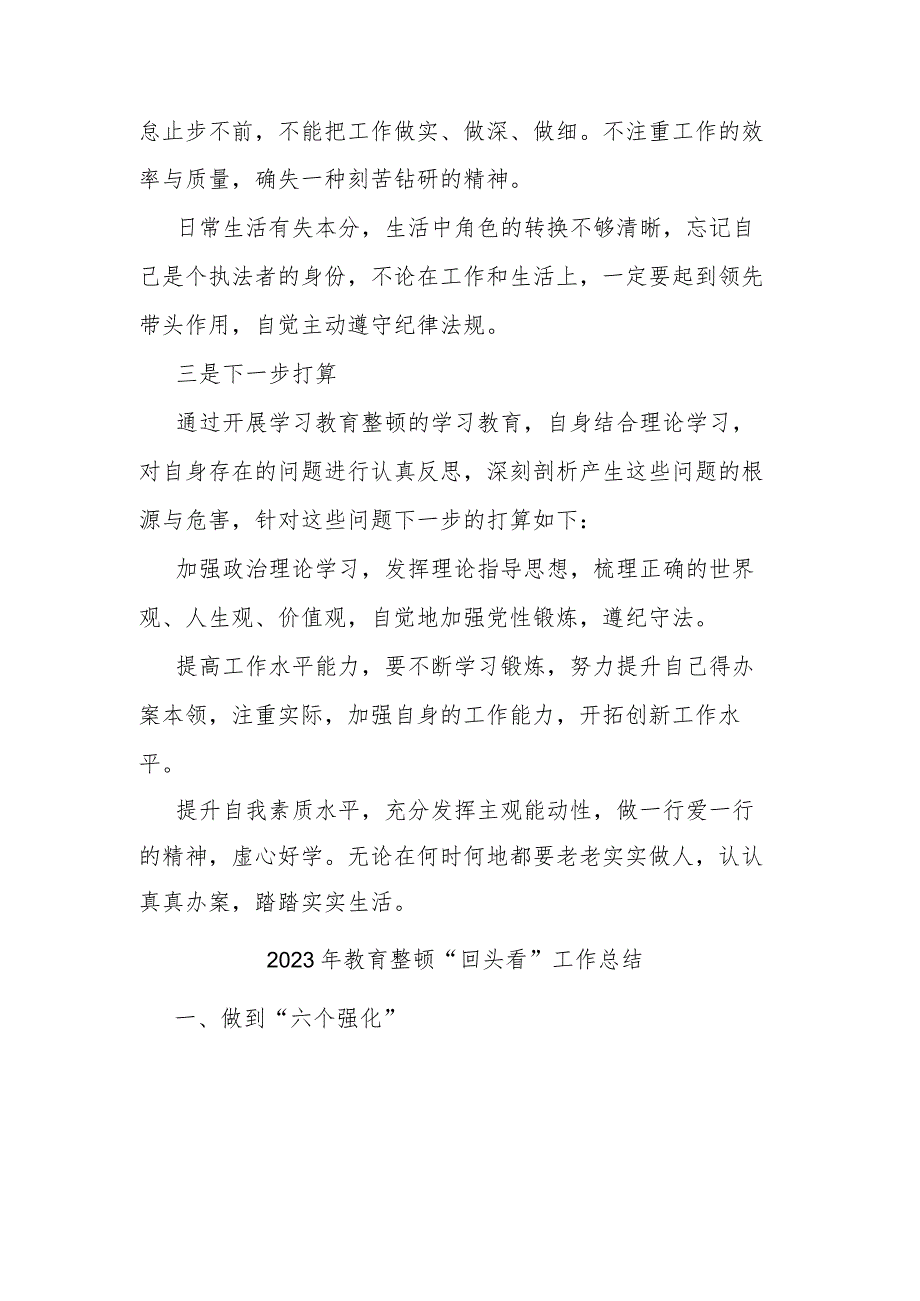 怠止步不前，不能把工作做实、做深、做细。不注重工作的效
率与质量，确失一种刻苦钻研的精神。
日常生活有失本分，生活中角色的转换不够清晰，忘记自
己是个执法者的身份，不论在工作和生活上，一定要起到领先
带头作用，自觉主动遵守纪律法规。
三是下一步打算
通过开展学习教育整顿的学习教育，自身结合理论学习，
对自身存在的问题进行认真反思，深刻剖析产生这些问题的根
源与危害，针对这些问题下一步的打算如下：
加强政治理论学习，发挥理论指导思想，梳理正确的世界
观、人生观、价值观，自觉地加强党性锻炼，遵纪守法。
提高工作水平能力，要不断学习锻炼，努力提升自己得办
案本领，注重实际，加强自身的工作能力，开拓创新工作水
平。
提升自我素质水平，充分发挥主观能动性，做一行爱一行
的精神，虚心好学。无论在何时何地都要老老实实做人，认认
真真办案，踏踏实实生活。
2023年教育整顿“回头看”工作总结
一、做到“六个强化”